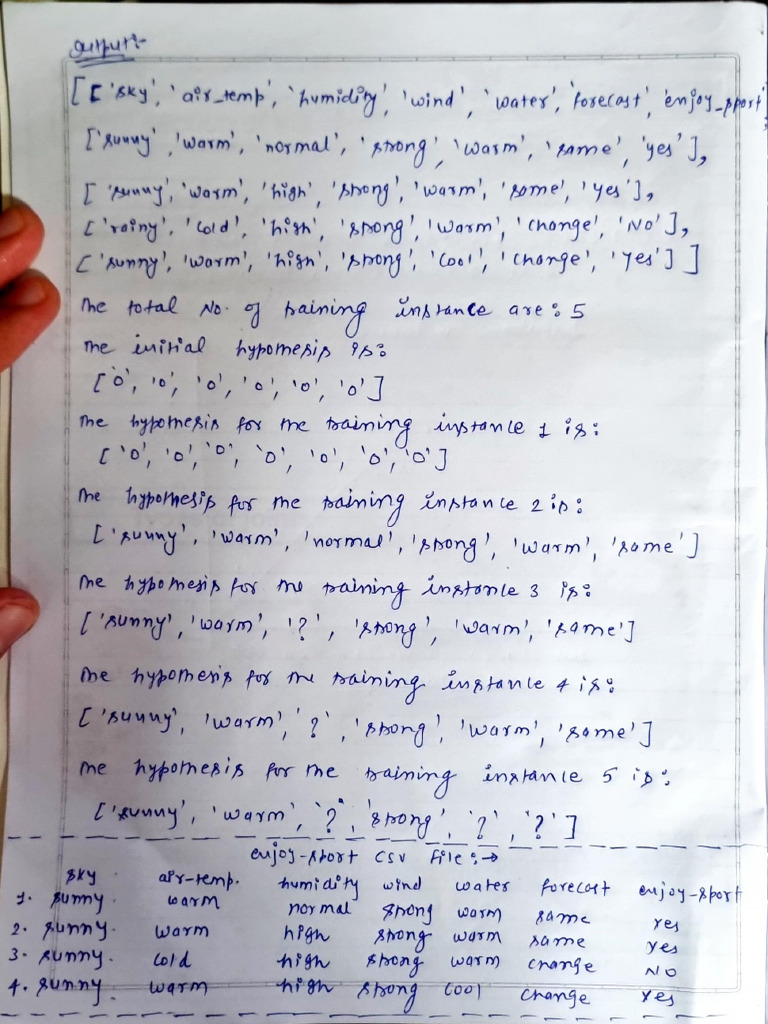 Output:-
[['sky', 'air_temp', 'humidity', 'wind', 'water', 'forecast', 'enjoy_sport'
['sunny', 'warm', 'normal', 'strong', 'warm', 'same', 'yes'],
['sunny', 'warm', 'high', 'strong', 'warm', 'same', 'yes'],
['rainy', 'cold', 'high', 'strong', 'warm', 'change', 'No'],
['sunny', 'warm', 'high', 'strong', 'cool', 'change', 'yes']]
The total No. of training instance are: 5
The initial hypothesis is:
['0', '0', '0', '0', '0', '0']
The hypothesis for the training instance 1 is:
['0', '0', '0', '0', '0', '0', '0']
The hypothesis for the training instance 2 is:
['sunny', 'warm', 'normal', 'strong', 'warm', 'same']
The hypothesis for the training instance 3 is:
['sunny', 'warm', '?', 'strong', 'warm', 'same']
The hypothesis for the training instance 4 is:
['sunny', 'warm', '?', 'strong', 'warm', 'same']
The hypothesis for the training instance 5 is:
['sunny', 'warm', '?', 'strong', '?', '?']
enjoy-sport csv file:→
sky air-temp. humidity wind water forecast enjoy-sport
1. sunny. warm normal strong warm same yes
2. sunny. warm high strong warm same yes
3. sunny. cold high strong warm change NO
4. sunny. warm high strong cool change yes